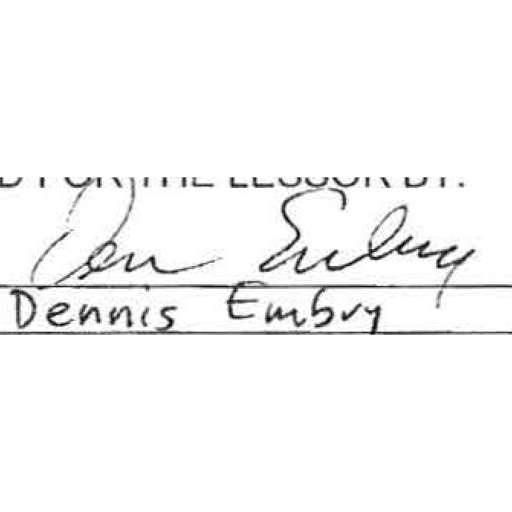 FOR THE LESSOR BY:
Den Embry
Dennis Embry